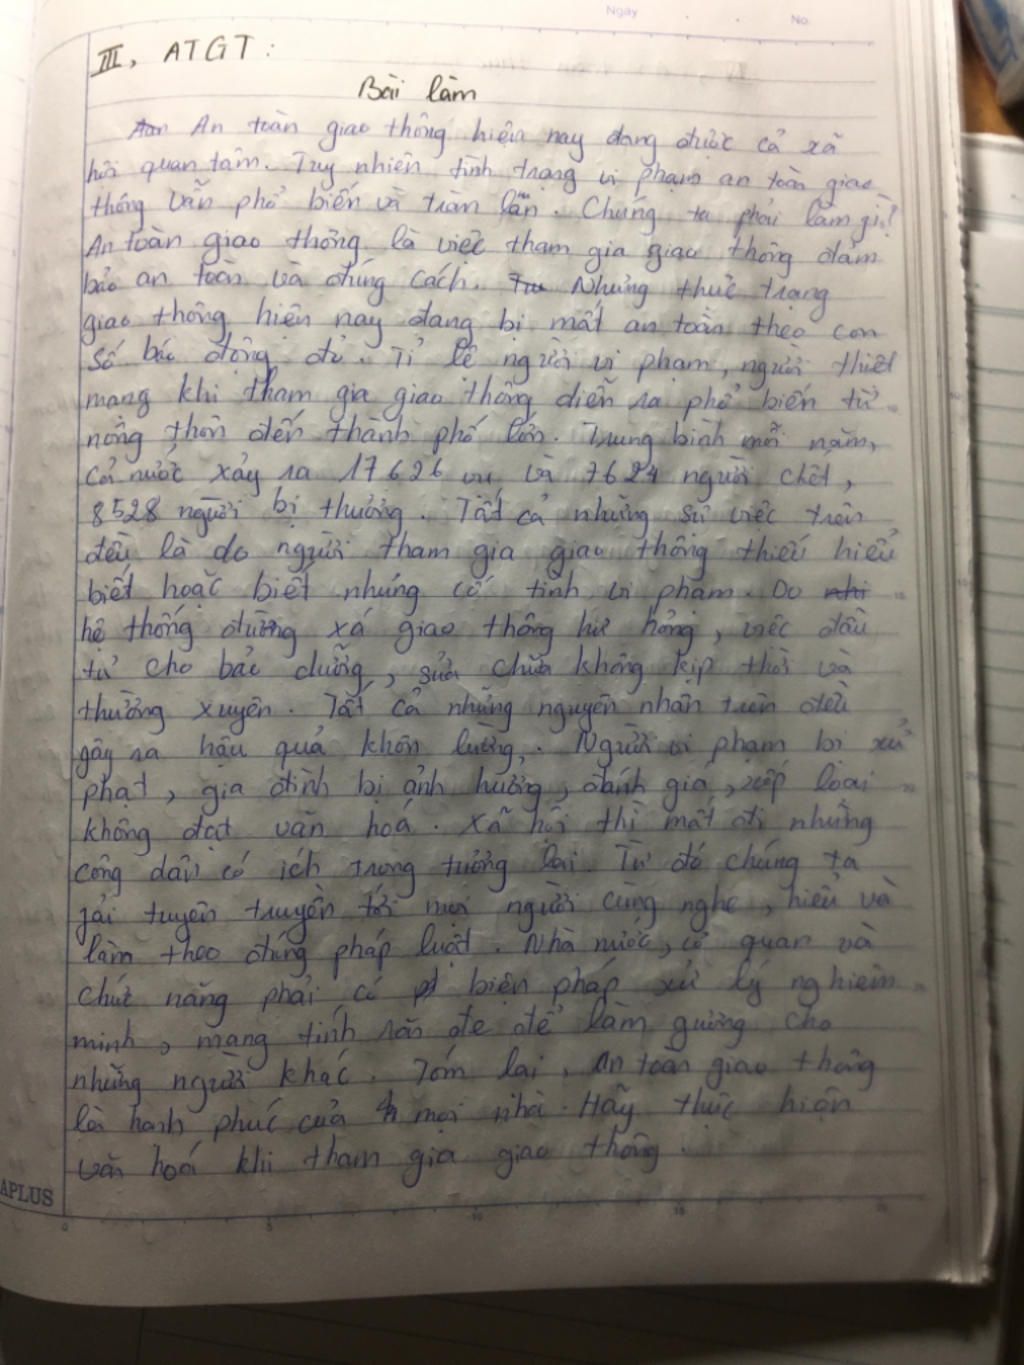 Ngày No.
III, ATGT:
Bài làm
An toàn giao thông hiện nay đang được cả xã
hội quan tâm. Tuy nhiên tình trạng vi phạm an toàn giao
thông vẫn phổ biến và tràn lan. Chúng ta phải làm gì?
An toàn giao thông là việc tham gia giao thông đảm
bảo an toàn và đúng cách. Những thực trạng
giao thông hiện nay đang bị mất an toàn theo con
số báo động đỏ. Tỉ lệ người vi phạm, người thiệt
mạng khi tham gia giao thông diễn ra phổ biến từ
nông thôn đến thành phố lớn. Trung bình mỗi năm,
cả nước xảy ra 17626 vụ và 7624 người chết,
8528 người bị thương. Tất cả những sự việc trên
đều là do người tham gia giao thông thiếu hiểu
biết hoặc biết nhưng cố tình vi phạm. Do
hệ thống đường xá giao thông hư hỏng, việc đầu
tư cho bảo dưỡng, sửa chữa không kịp thời và
thường xuyên. Tất cả những nguyên nhân trên đều
gây ra hậu quả khôn lường. Người vi phạm bị xử
phạt, gia đình bị ảnh hưởng, đánh giá, xếp loại
không đạt văn hoá. Xã hội thì mất đi những
công dân có ích trong tương lai. Từ đó chúng ta
tuyên truyền tới mọi người cùng nghe, hiểu và
làm theo đúng pháp luật. Nhà nước, cơ quan và
chức năng phải có biện pháp xử lý nghiêm
minh, mang tính răn đe để làm gương cho
những người khác. Tóm lại, An toàn giao thông
là hạnh phúc của mọi nhà. Hãy thực hiện
văn hoá khi tham gia giao thông.
APLUS
0 5 10 15 20